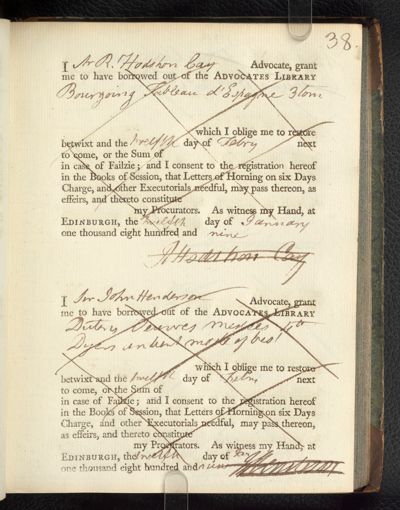 38.
I Ar R. Hodshon Cay Advocate, grant
me to have borrowed out of the ADVOCATES LIBRARY
Bourgoing Tableau d'Espagne 3 tom
which I oblige me to restore
betwixt and the twelfth day of Febry next
to come, or the Sum of
in case of Failzie; and I consent to the registration hereof
in the Books of Session, that Letters of Horning on six Days
Charge, and other Executorials needful, may pass thereon, as
effeirs, and thereto constitute
my Procurators. As witness my Hand, at
EDINBURGH, the twelfth day of January
one thousand eight hundred and nine
R Hodshon Cay
I Ar John Henderson Advocate, grant
me to have borrowed out of the ADVOCATES LIBRARY
4to
Dyers
which I oblige me to restore
betwixt and the twelfth day of Febry next
to come, or the Sum of
in case of Failzie; and I consent to the registration hereof
in the Books of Session, that Letters of Horning on six Days
Charge, and other Executorials needful, may pass thereon,
as effeirs, and thereto constitute
my Procurators. As witness my Hand, at
EDINBURGH, the twelfth day of Jany
one thousand eight hundred and nine